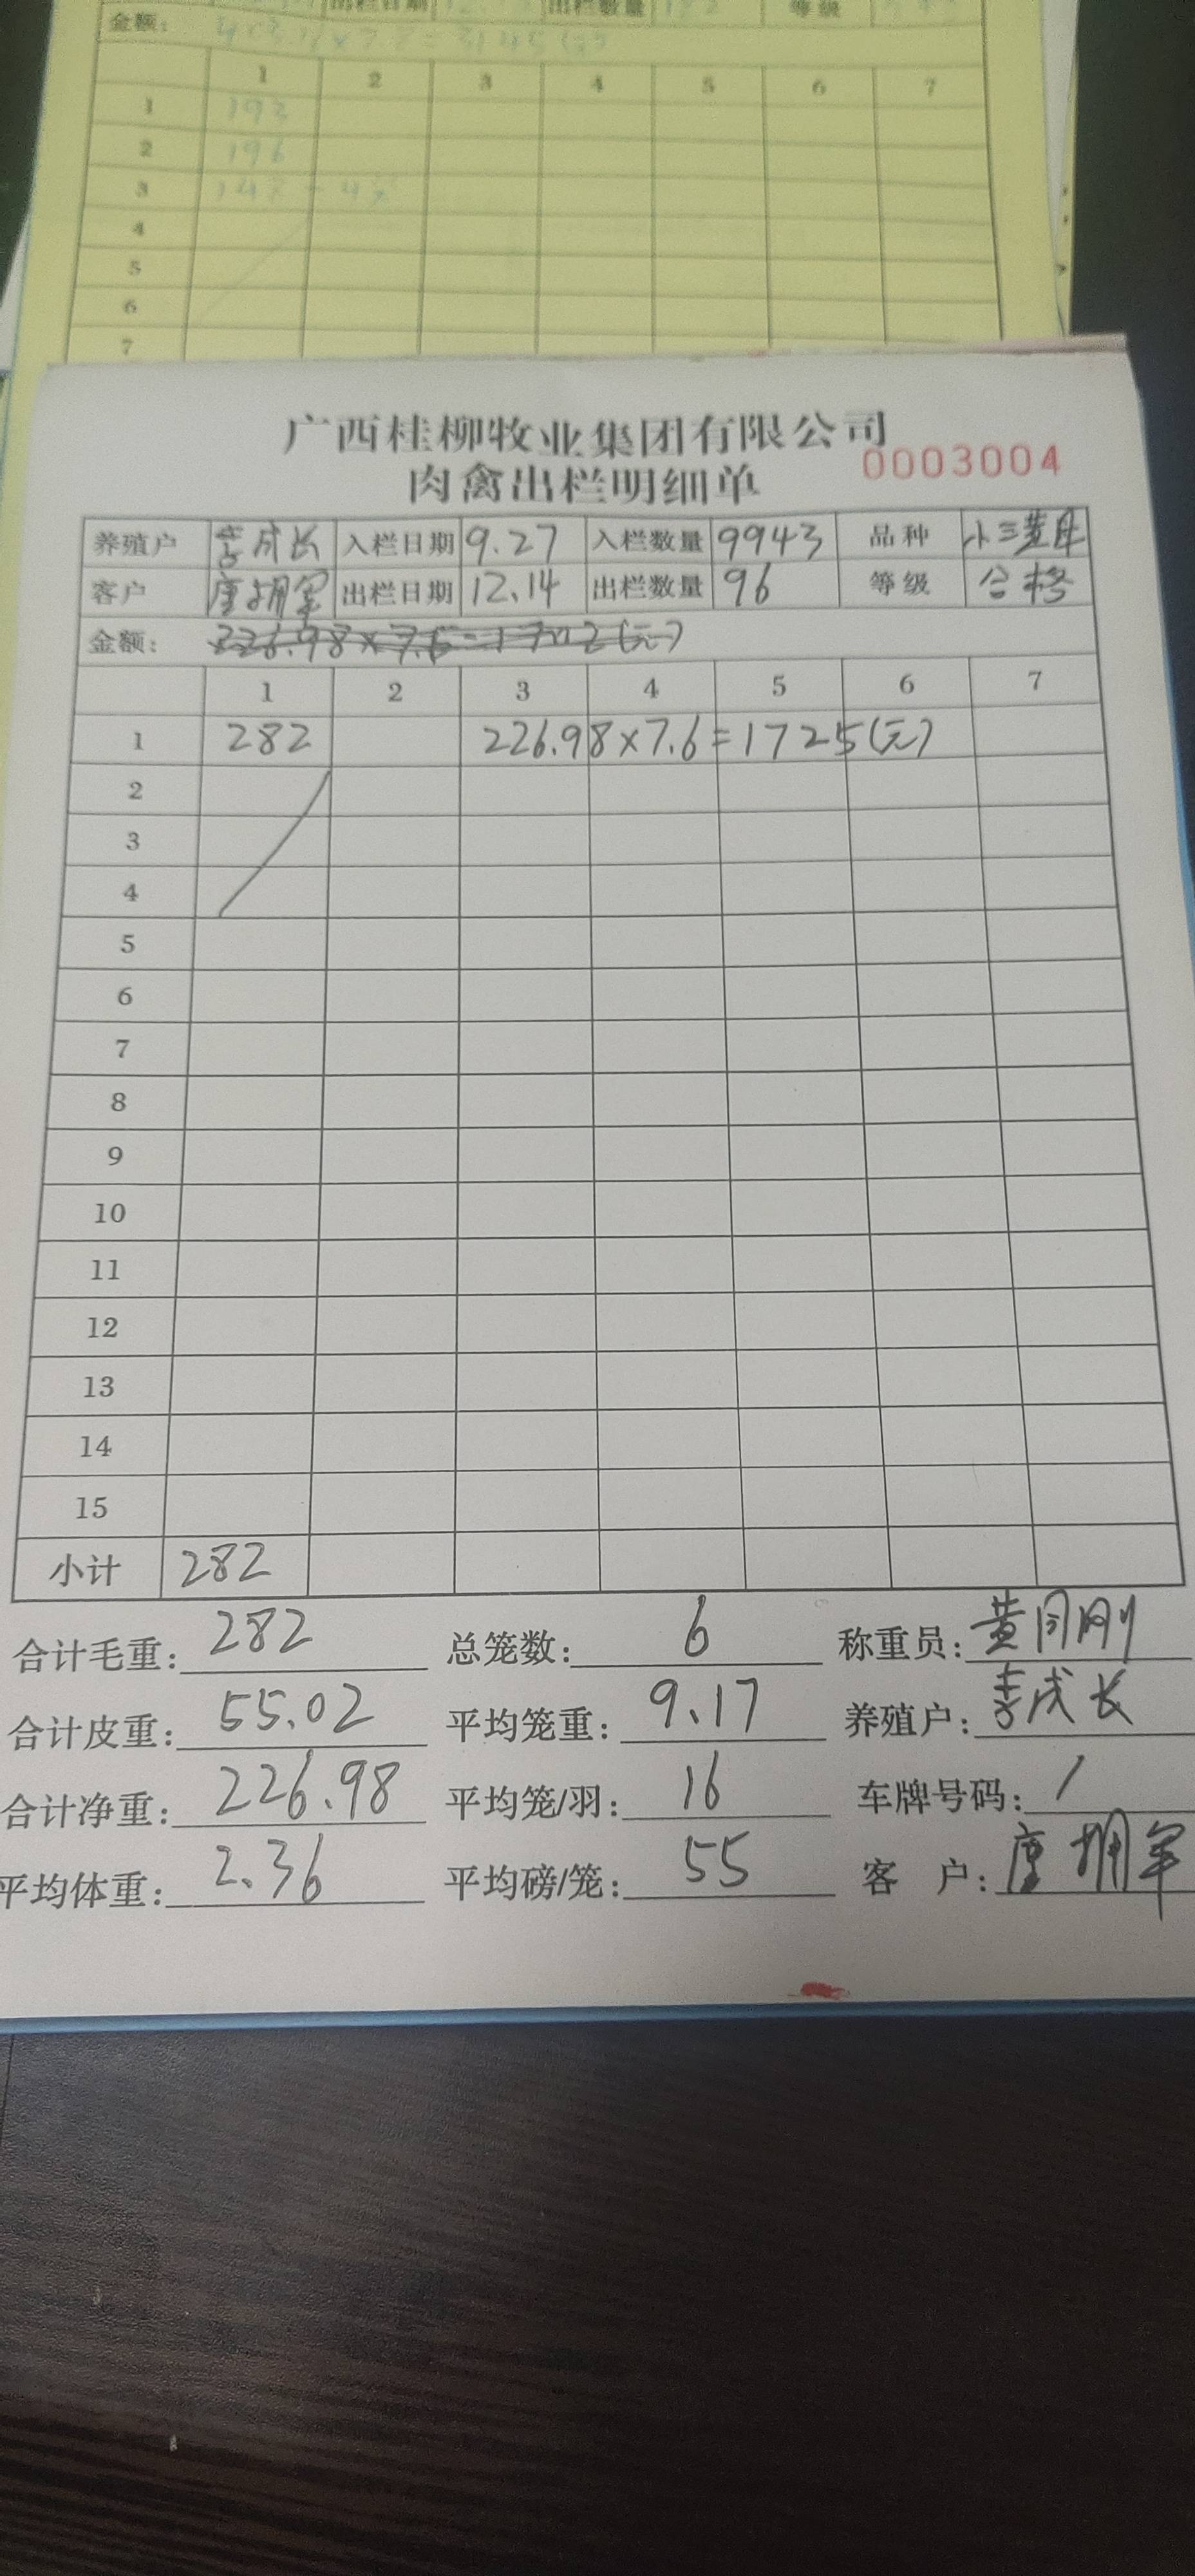 出栏日期 出栏数量 等级
金额:
1 2 3 4 5 6 7
1 193
2 196
3
4
5
6
7
广西桂柳牧业集团有限公司
0003004
肉禽出栏明细单
养殖户 李成长 入栏日期 9.27 入栏数量 9943 品种 小三黄母
客户 唐拥军 出栏日期 12.14 出栏数量 96 等级 合格
金额: 226.98×7.5=1702(元)
1 2 3 4 5 6 7
1 282 226.98×7.6=1725(元)
2
3
4
5
6
7
8
9
10
11
12
13
14
15
小计 282
合计毛重: 282 总笼数: 6 称重员: 黄同刚
合计皮重: 55.02 平均笼重: 9.17 养殖户: 李成长
合计净重: 226.98 平均笼/羽: 16 车牌号码: /
平均体重: 2.36 平均磅/笼: 55 客 户: 唐拥军